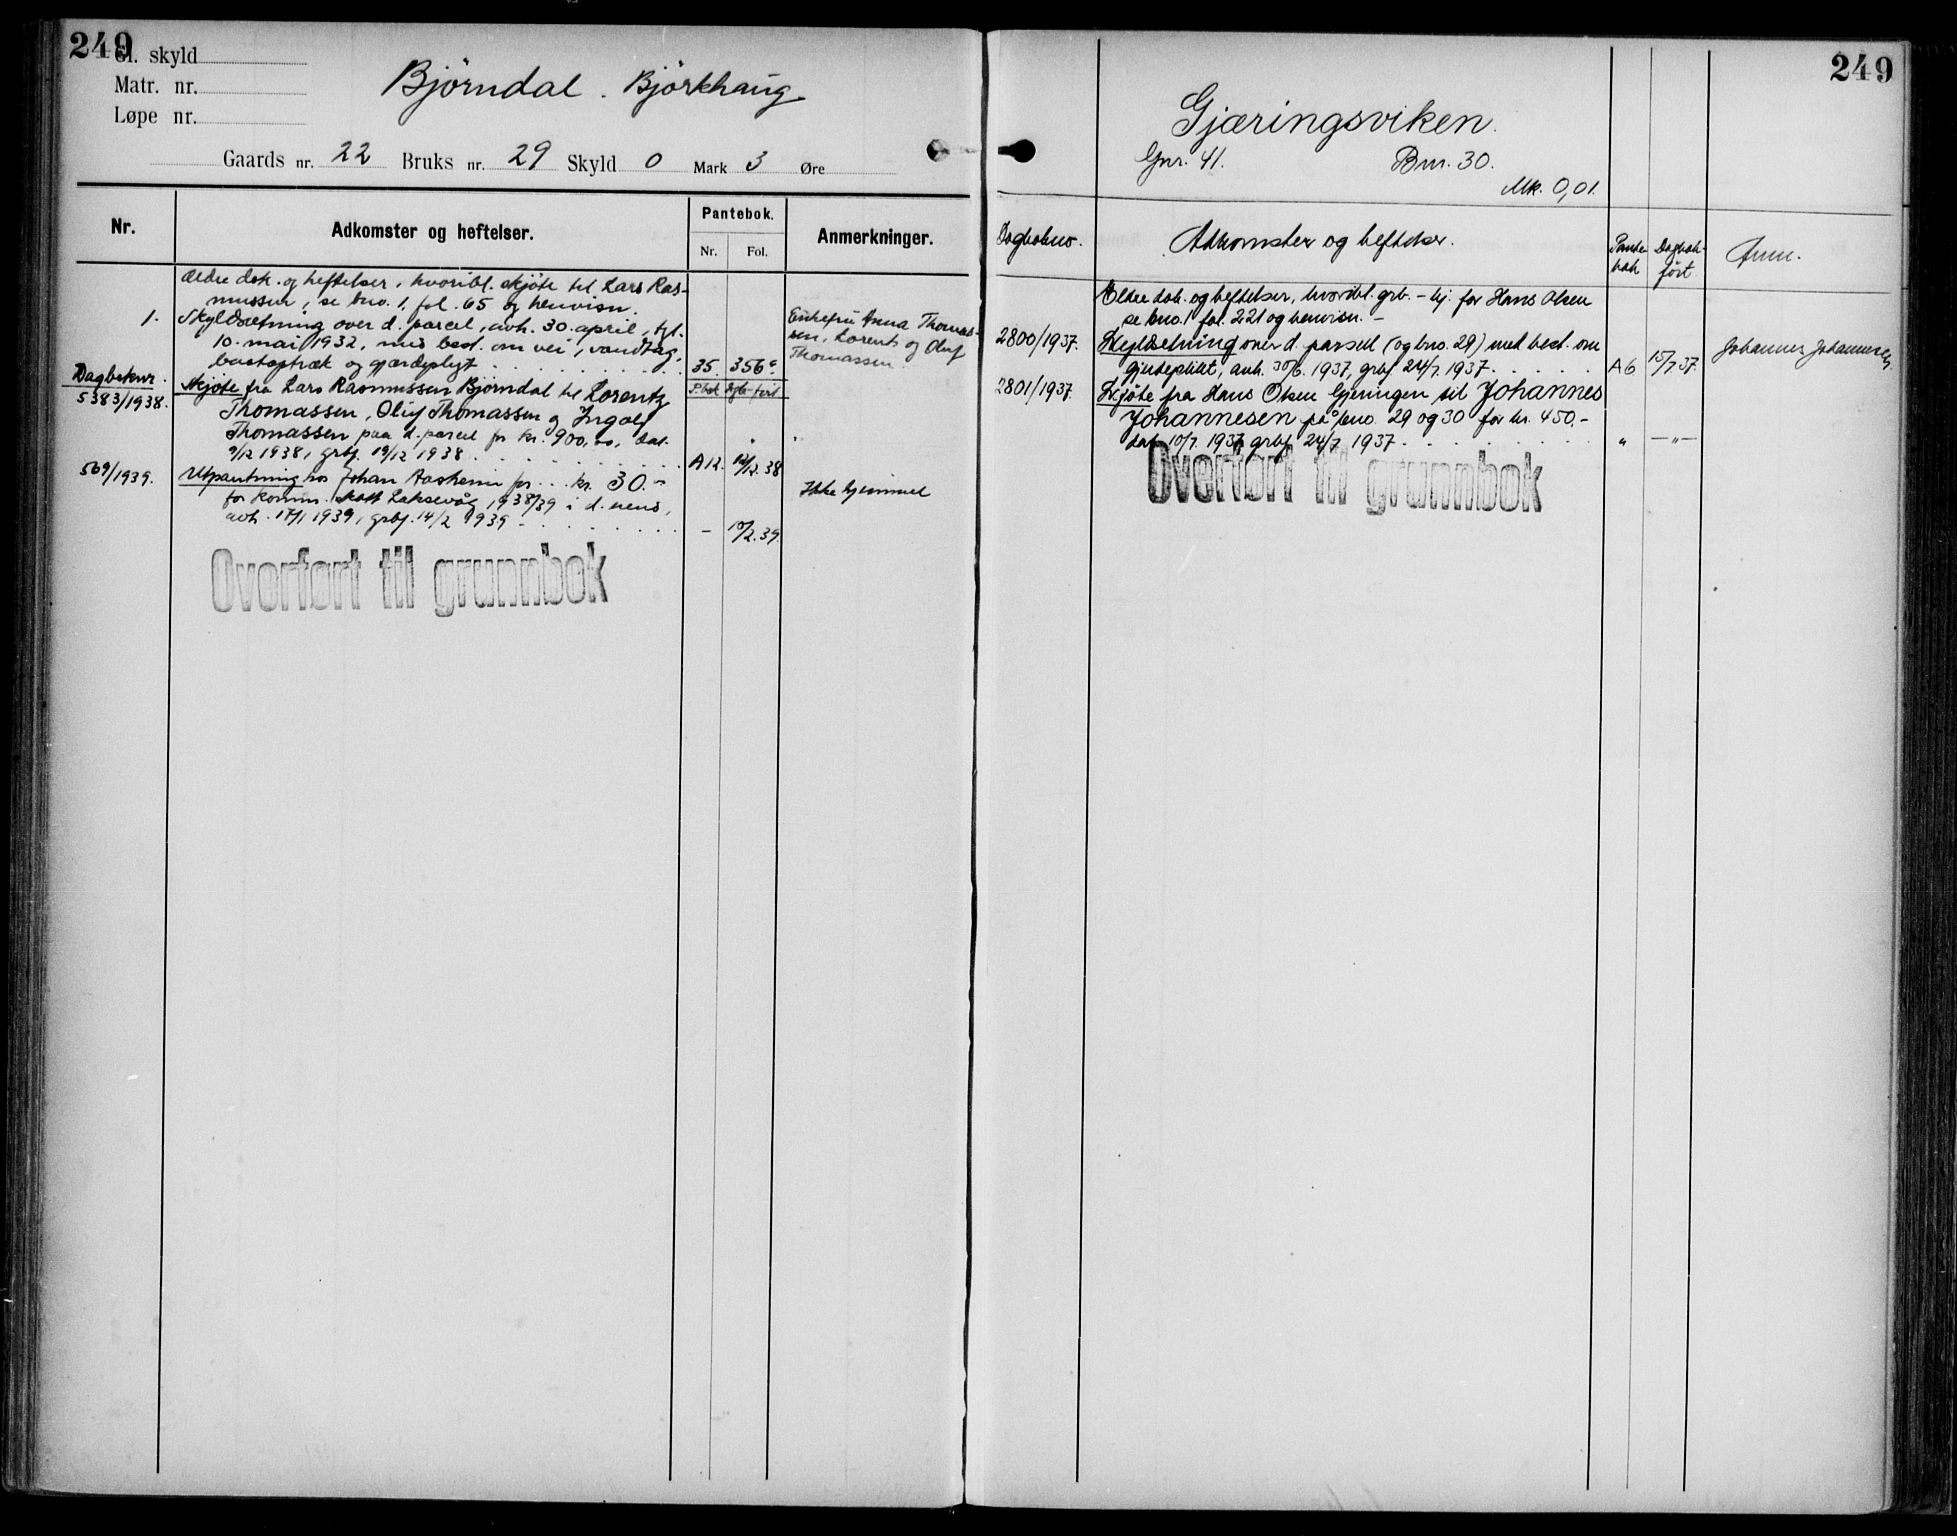 249
Gl. skyld
Matr. nr.
Løpe nr.
Bjørndal. Bjørkhaug
Gaards nr. 22 Bruks nr. 29 Skyld 0 Mark 3 Øre
Nr.
Adkomster og heftelser.
Pantebok.
Nr. Fol.
Anmerkninger.
Ældre dok. og heftelser, hvoribl. skjøte til Lars Ras-
mussen, se bno. 1, fol. 65 og henvisn.
1. Skyldsetning over d. parcel, avh. 30. april, tgl.
10. mai 1932, med best. om vei, vandtag,
bustoptræk og gjærdepligt 35. 356
Enkefru Anna Thomas-
sen, Lorents og Oluf
Thomassen
Dagboknr. P.bok Dgb. ført
5383/1938. Skjøte fra Lars Rasmussen Bjørndal til Lorentz
Thomassen, Oluf Thomassen og Ingolf
Thomassen paa d. parcel for kr. 900,00, dat.
9/12 1938, grbf. 19/12 1938 A12. 12/12.38
569/1939. Utpantning hos Johan Aasheim for kr. 30.-
for komm. skatt Laksevåg 1938/39 i d. eiend,
avh. 17/1 1939, grbf. 14/2 1939 - 10/2.39
Ikke hjemmel
Overført til grunnbok
249
Gjæringsviken.
Gnr. 41. Bnr. 30.
Mk. 0,01.
Dagbokno.
Adkomster og heftelser.
Pante-
bok
Dagbok-
ført
Anm.
Eldre dok. og heftelser, hvoribl. grb.-hj. for Hans Olsen
se bno. 1 fol. 221 og henvisn. -
2800/1937. Skyldsetning over d. parsell (og bno. 29) med best. om
gjerdeplikt, avh. 30/6. 1937, grbf 24/7. 1937 A6 15/7 37.
Johannes Johannesen
2801/1937. Skjøte fra Hans Olsen Gjeringen til Johannes
Johannesen på bno. 29 og 30 for kr. 450.-
dat. 10/7. 1937 grbf. 24/7. 1937 " -"-
Overført til grunnbok